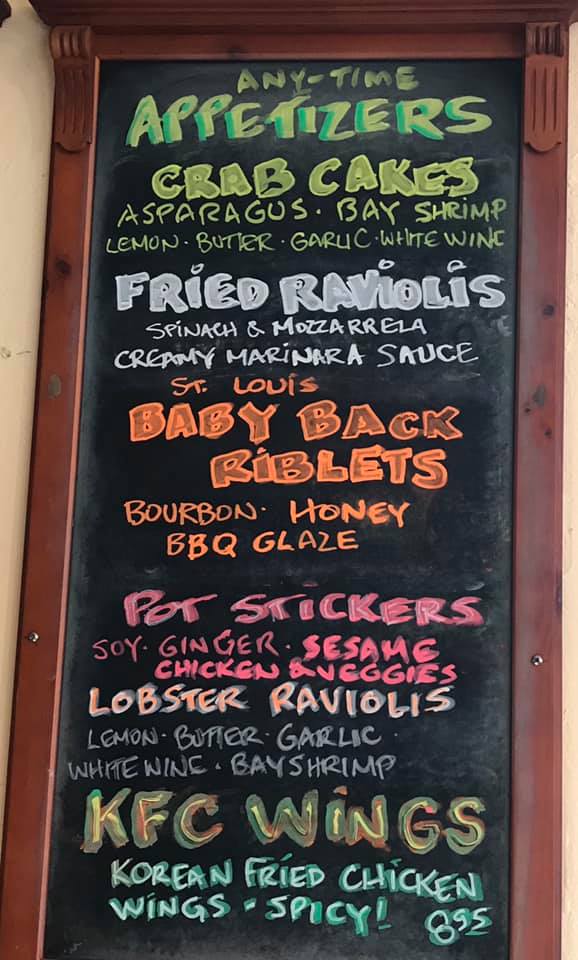 ANY-TIME
APPETIZERS
CRAB CAKES
ASPARAGUS · BAY SHRIMP
LEMON · BUTTER · GARLIC · WHITE WINE
FRIED RAVIOLIS
SPINACH & MOZZARRELA
CREAMY MARINARA SAUCE
ST. LOUIS
BABY BACK
RIBLETS
BOURBON · HONEY
BBQ GLAZE
POT STICKERS
SOY · GINGER · SESAME
CHICKEN & VEGGIES
LOBSTER RAVIOLIS
LEMON · BUTTER · GARLIC ·
WHITE WINE · BAY SHRIMP
KFC WINGS
KOREAN FRIED CHICKEN
WINGS - SPICY! 895